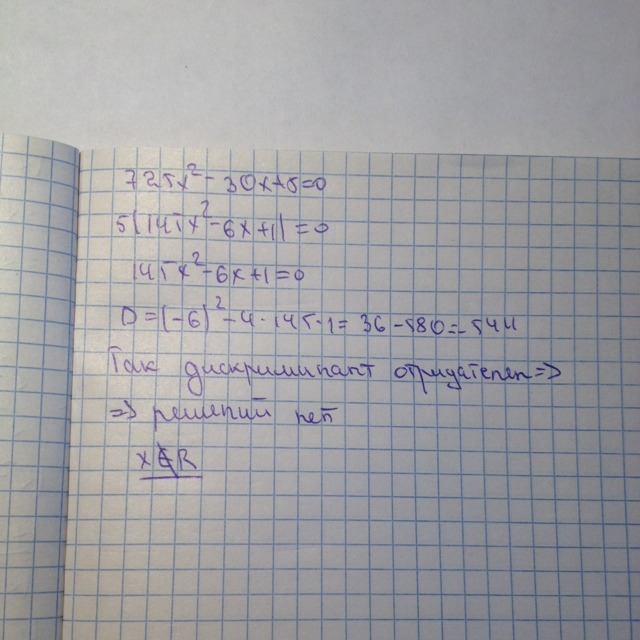 725x² - 30x+5=0
5(145x²-6x+1)=0
145x²-6x+1=0
D=(-6)²-4·145·1= 36-580=-544
Так дискриминант отрицателен=>
=> решений нет
x∉R